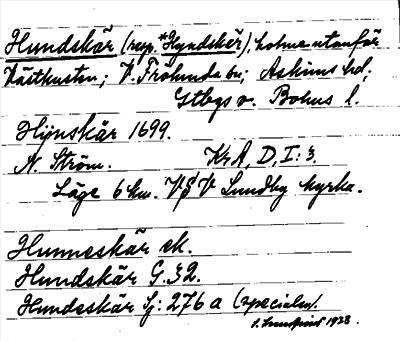 Hundskär (resp. *Hyndskär), holme utanför
Västkusten; V. Frölunda sn; Askims hd;
Gtbgs o. Bohus l.
Hijnskär 1699.
N. Ström. KrA, D, I: 3.
Läge 6 km. VSV Lundby kyrka.
Hunneskär ek.
Hundskär G. 32.
Hundeskär Sj: 276 a (specialen).
1928.